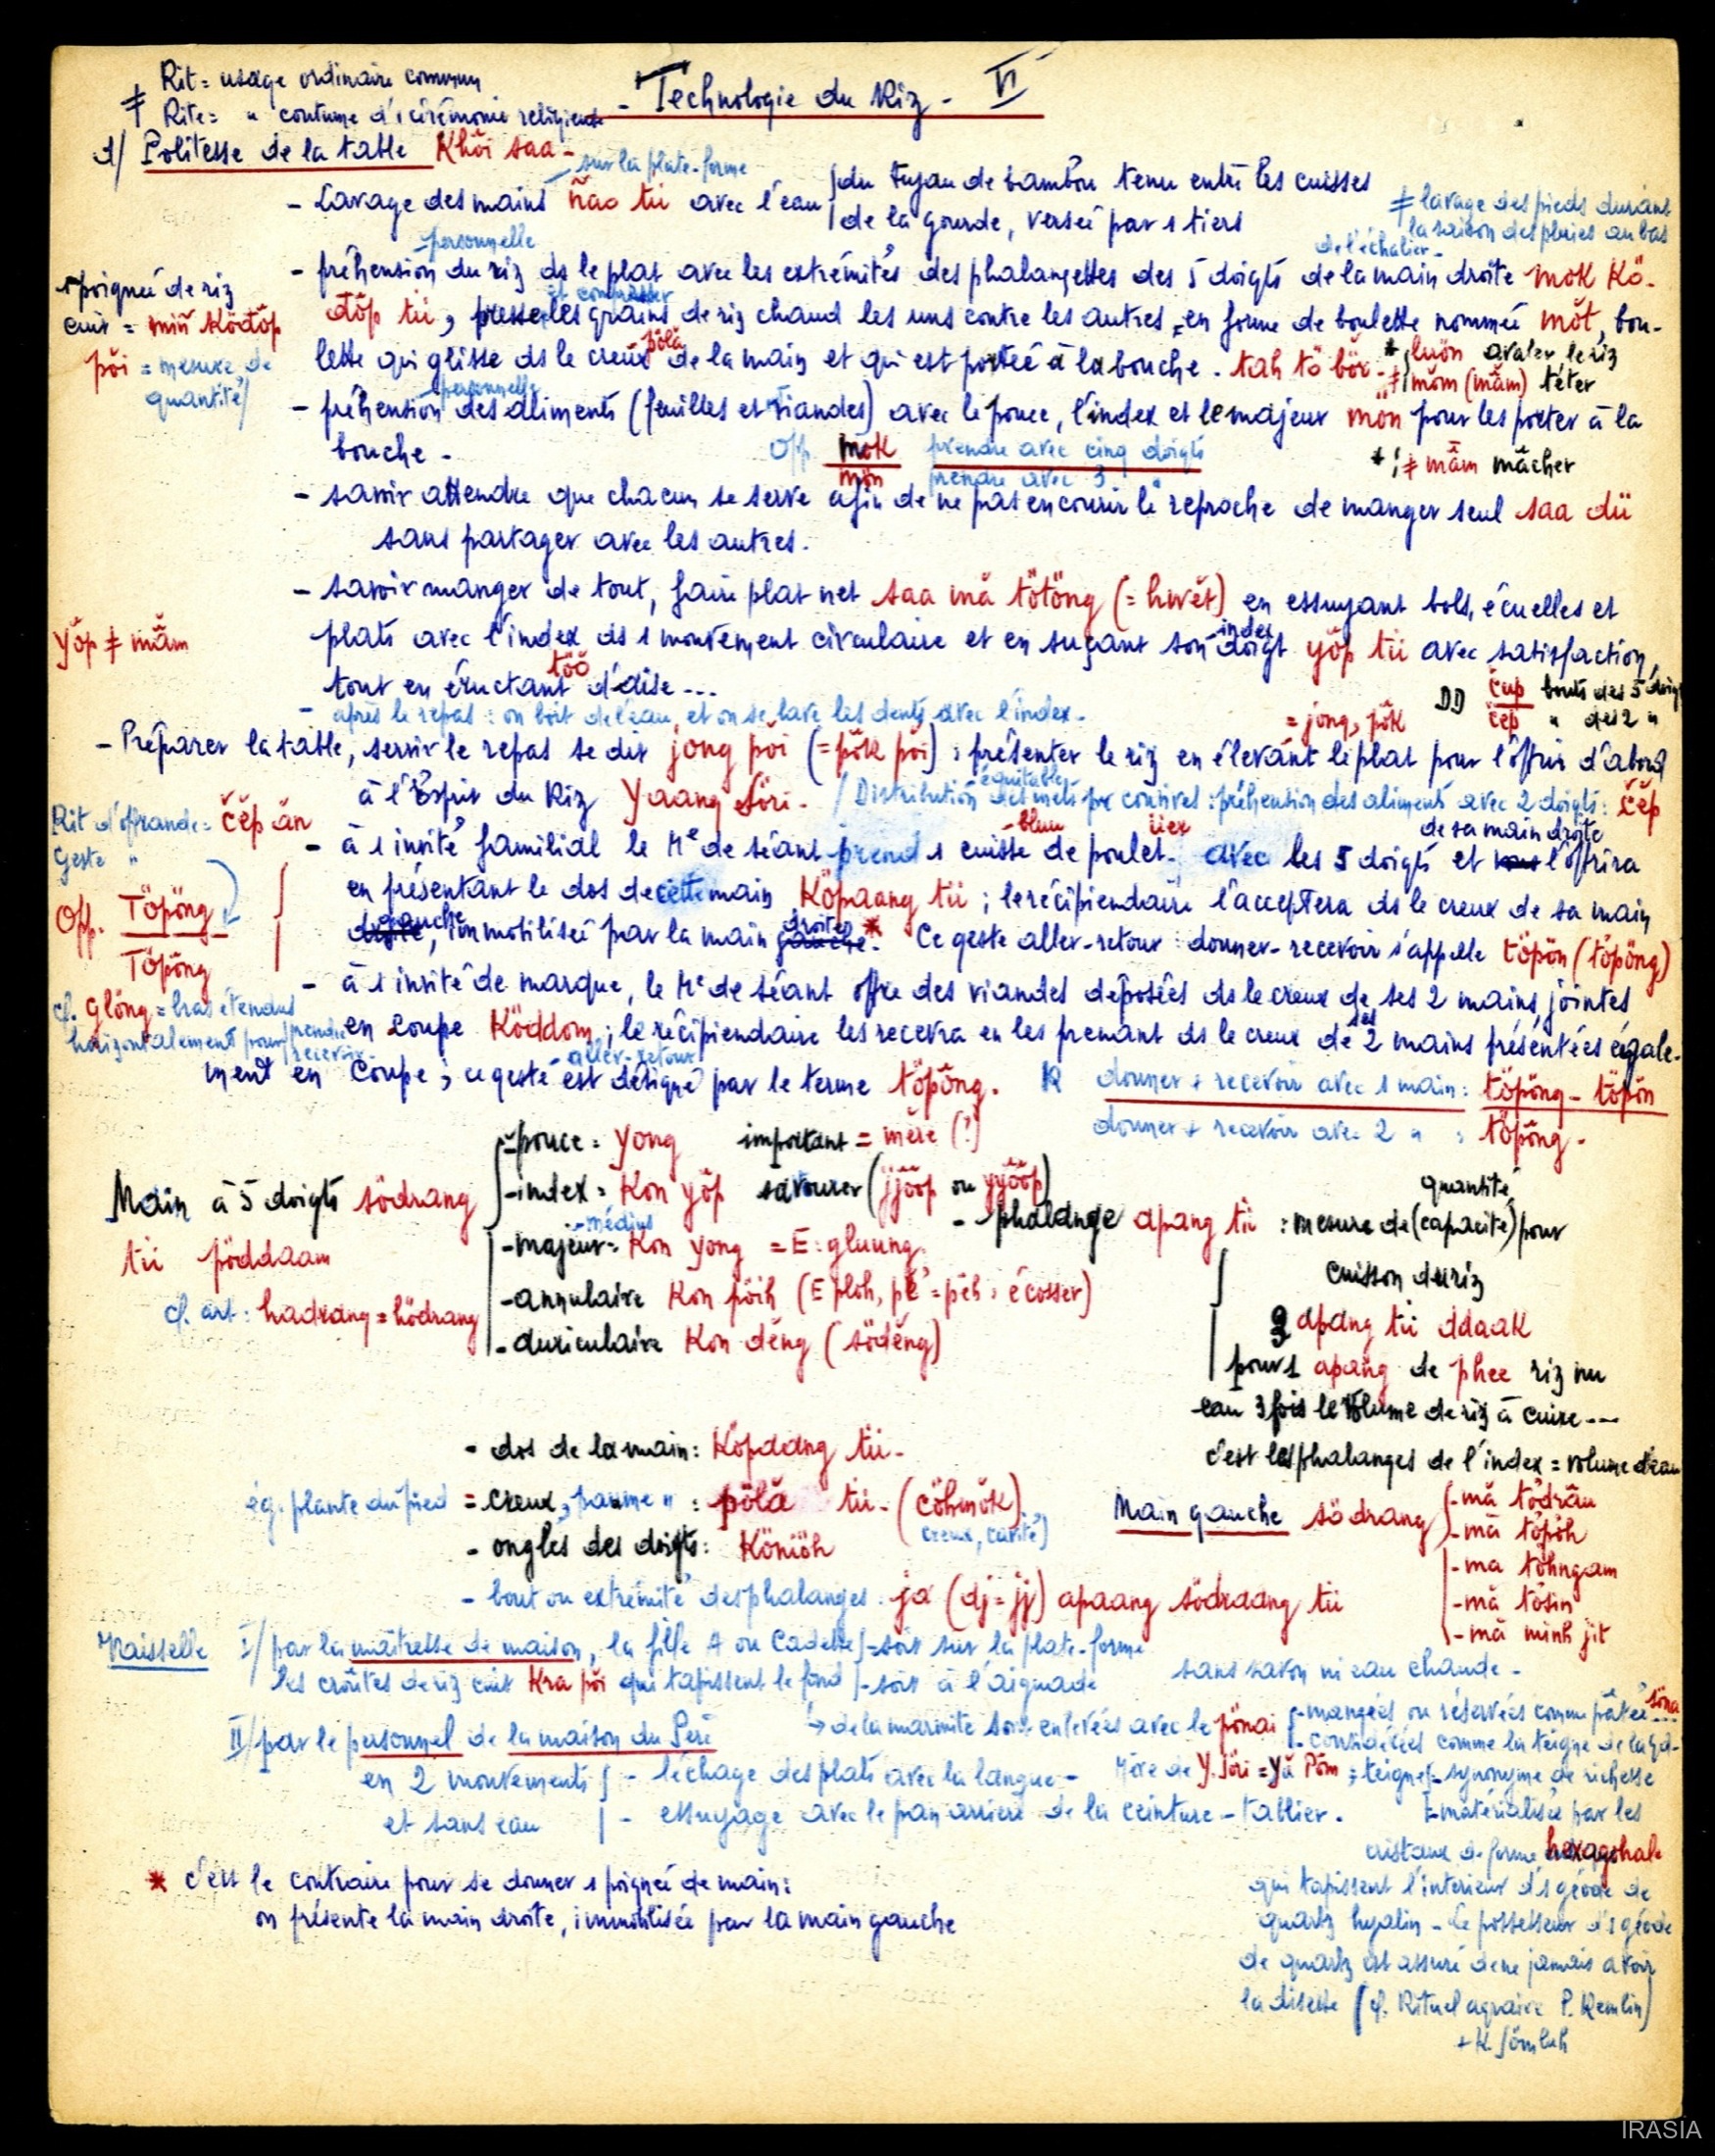 Rit = usage ordinaire commun
≠ Rite = " coutume d'1 cérémonie religieuse
- Technologie du Riz - VI
d/ Politesse de la table Khŏi saa -
sur la plate-forme
- Lavage des mains ñao tii avec l'eau du tuyau de bambou tenu entre les cuisses
de la gourde, versée par 1 tiers
≠ lavage des pieds durant
la saison des pluies au bas
de l'échalier -
personnelle
- préhension du riz ds le plat avec les extrémités des phalangettes des 5 doigts de la main droite mŏk kö-
1 poignée de riz
cuit = miñ ködŏp
pŏi = mesure de
quantité
et compresser
dŏp tii, presse les grains de riz chaud les uns contre les autres, en forme de boulette nommée mŏt, bou-
pölă
lette qui glisse ds le creux de la main et qui est portée à la bouche. tah tö bŏr -
* luŏn avaler le riz
≠ mŏm (măm) téter
personnelle
- préhension des aliments (feuilles et viandes) avec le pouce, l'index et le majeur mŏn pour les porter à la
bouche -
Opp. mŏk prendre avec cinq doigts
mŏn prendre avec 3 "
* ; ≠ măm mâcher
- savoir attendre que chacun se serve afin de ne pas encourir le reproche de manger seul saa dii
sans partager avec les autres.
- savoir manger de tout, faire plat net saa mă tötŏng (= hwĕt) en essuyant bols, écuelles et
yŏp ≠ măm
index
plats avec l'index ds 1 mouvement circulaire et en suçant son doigt yŏp tii avec satisfaction,
töŏ
tout en éructant d'aise...
DD čup bouts des 5 doigts
čep " des 2 "
- après le repas : on boit de l'eau, et on se lave les dents avec l'index -
= jong, pŏk
- Préparer la table, servir le repas se dit jong pŏi (= pŏk pŏi) : présenter le riz en élevant le plat pour l'offrir d'abord
à l'Esprit du Riz Yaang Sŏri -
équitable
/ Distribution des mets par convives : préhension des aliments avec 2 doigts : čĕp
Rit d'offrande = čĕp ăn
Geste "
bluu
iiex
de sa main droite
- à 1 invité familial le Me de séant prend 1 cuisse de poulet avec les 5 doigts et l'offrira
en présentant le dos de cette main Köpaang tii ; le récipiendaire l'acceptera ds le creux de sa main
Opp. Töpŏng
Töpông
gauche, immobilisée par la main droite *. Ce geste aller-retour : donner-recevoir s'appelle töpŏn (töpŏng)
- à 1 invité de marque, le Me de séant offre des viandes déposées ds le creux de ses 2 mains jointes
cf. glŏng = bras étendus
horizontalement pour prendre
recevoir -
en coupe Köddom ; le récipiendaire les recevra en les prenant ds le creux de ses 2 mains présentées égale-
aller-retour
ment en coupe ; ce geste est désigné par le terme töpông.
R donner + recevoir avec 1 main : töpŏng - töpŏn
donner + recevoir avec 2 " : töpông -
Main à 5 doigts södrang
tii pöddaam
cf. art : hadrang = hödrang
- pouce = yong important = mère (?)
- index = Kon yŏp savourer (jjŏŏp ou yyŏŏp)
médius
- majeur = Kon yong = E : gluung
- annulaire Kon pŏih (E ploh, pĕ = pĕh : écosser)
- auriculaire Kon dĕng (södĕng)
- phalange apang tii : mesure de (capacité) pour
quantité
cuisson du riz
3 apang tii ddaak
pour 1 apang de phee riz nu
eau 3 fois le volume de riz à cuire ---
c'est les phalanges de l'index = volume d'eau
- dos de la main : Köpaang tii -
ég. plante du pied = creux, paume " : pölă tii - (cŏhmŏk)
creux, cavité
- ongles des doigts : Köniŏh
- bout ou extrémité des phalanges : ja (dj = jj) apaang södraang tii
Main gauche södrang
- mă tödrâu
- mă töpŏh
- ma töhngam
- mă tösin
- mă minh jit
Vaisselle I/ par la maîtresse de maison, la fille A ou Cadette
- soit sur la plate-forme
- soit à l'aiguade
sans savon ni eau chaude -
les croûtes de riz cuit Kra pŏi qui tapissent le fond
→ de la marmite sont enlevées avec le pönai
- mangées ou réservées comme pâtée söna ...
- considérées comme la teigne de la gd-
Mère de Y. Sŏri = Yă Pŏm ; teigne
- synonyme de richesse
- matérialisée par les
cristaux de forme hexagonale
qui tapissent l'intérieur d'1 géode de
quartz hyalin - Le possesseur d'1 géode
de quartz est assuré de ne jamais avoir
la disette (cf. Rituel agraire P. Kemlin)
+ K. Sömluh
II/ par le personnel de la maison du Père
en 2 mouvements
et sans eau
- léchage des plats avec la langue -
- essuyage avec le pan arrière de la ceinture-tablier.
* c'est le contraire pour se donner 1 poignée de main :
on présente la main droite, immobilisée par la main gauche
IRASIA